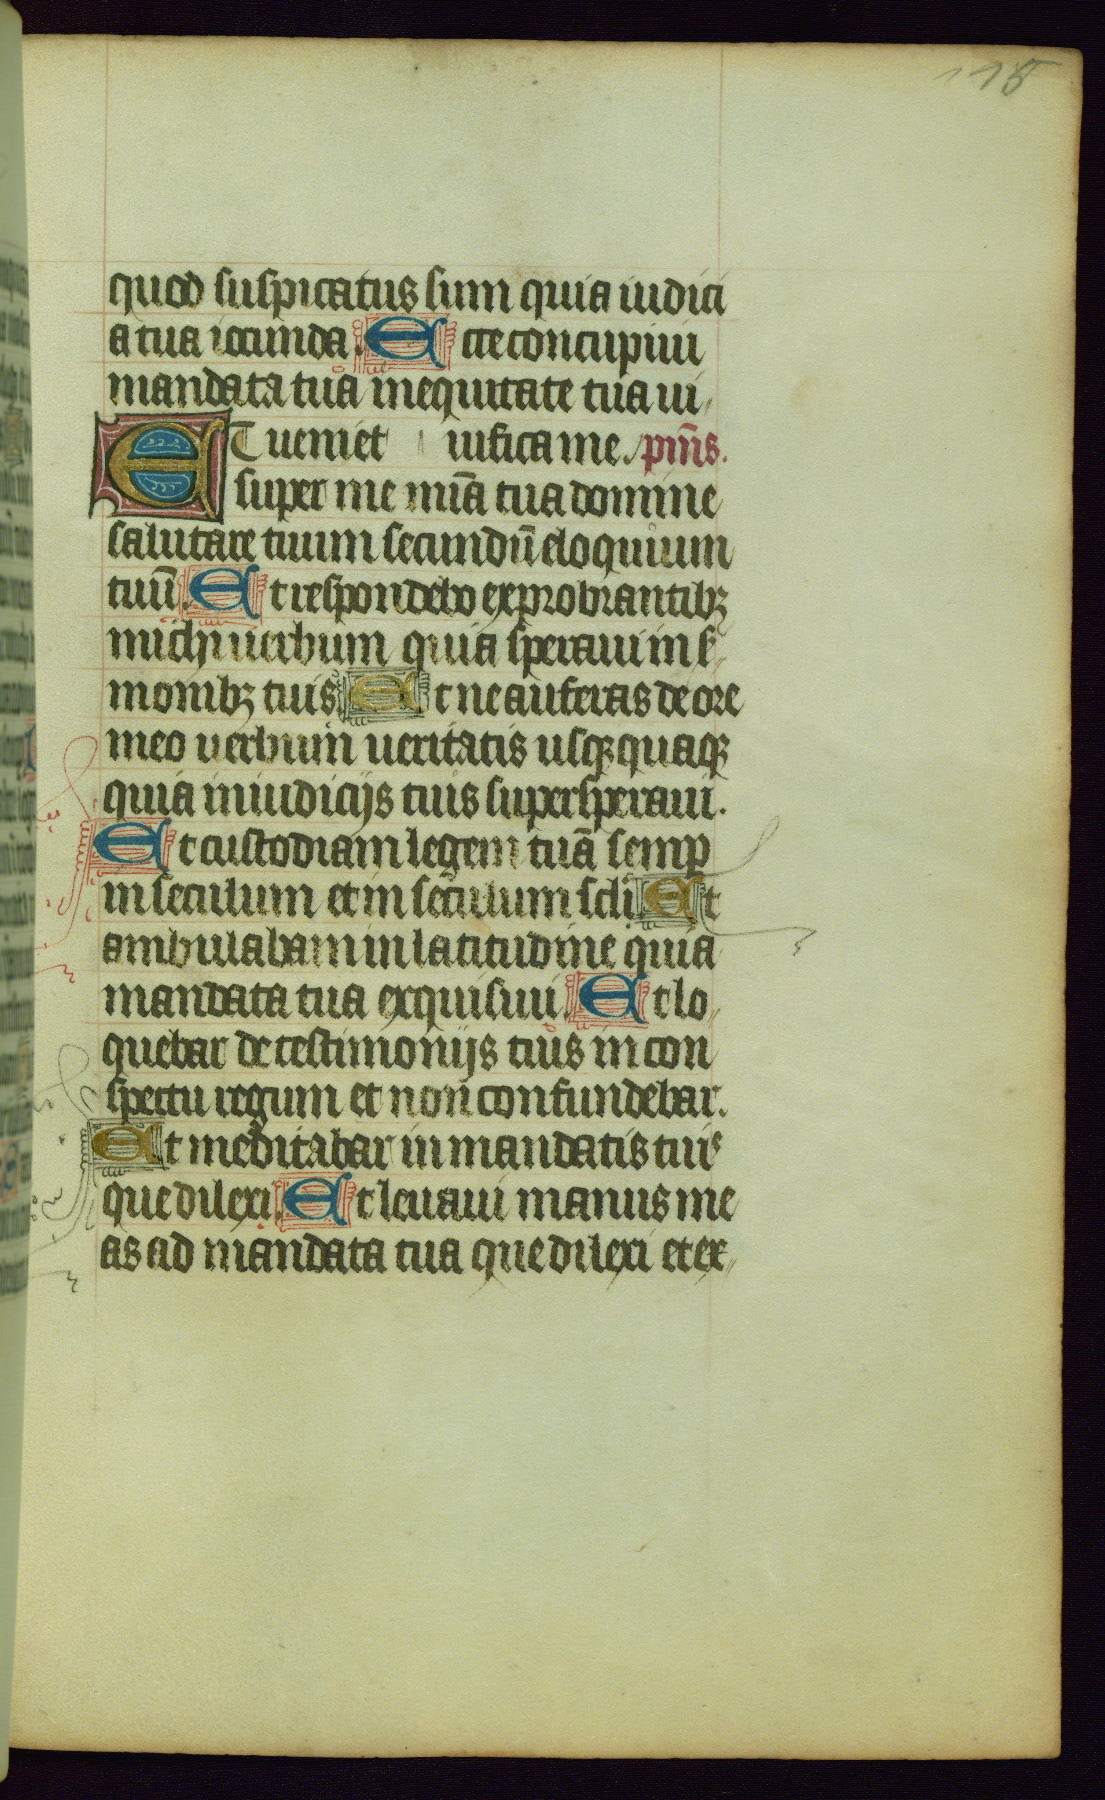 115
quod suspicatus sum quia iudici
a tua iocunda. Ecce concupiui
mandata tua in equitate tua ui
ET ueniet uifica me. pm̄s.
super me mīa tua domine
salutare tuum secundū eloquium
tuū. Et respondebo exprobrantibꝫ
michi uerbum quia speraui in ser
monibꝫ tuis. Et ne auferas de ore
meo uerbum ueritatis usqꝫ quaqꝫ
quia in iudicijs tuis supersperaui.
Et custodiam legem tuā semp
in seculum et in seculum scli. Et
ambulabam in latitudine quia
mandata tua exquisiui. Et lo
quebar de testimonijs tuis in con
spectu regum et non confundebar.
Et meditabar in mandatis tuis
que dilexi. Et leuaui manus me
as ad mandata tua que dilexi et ex